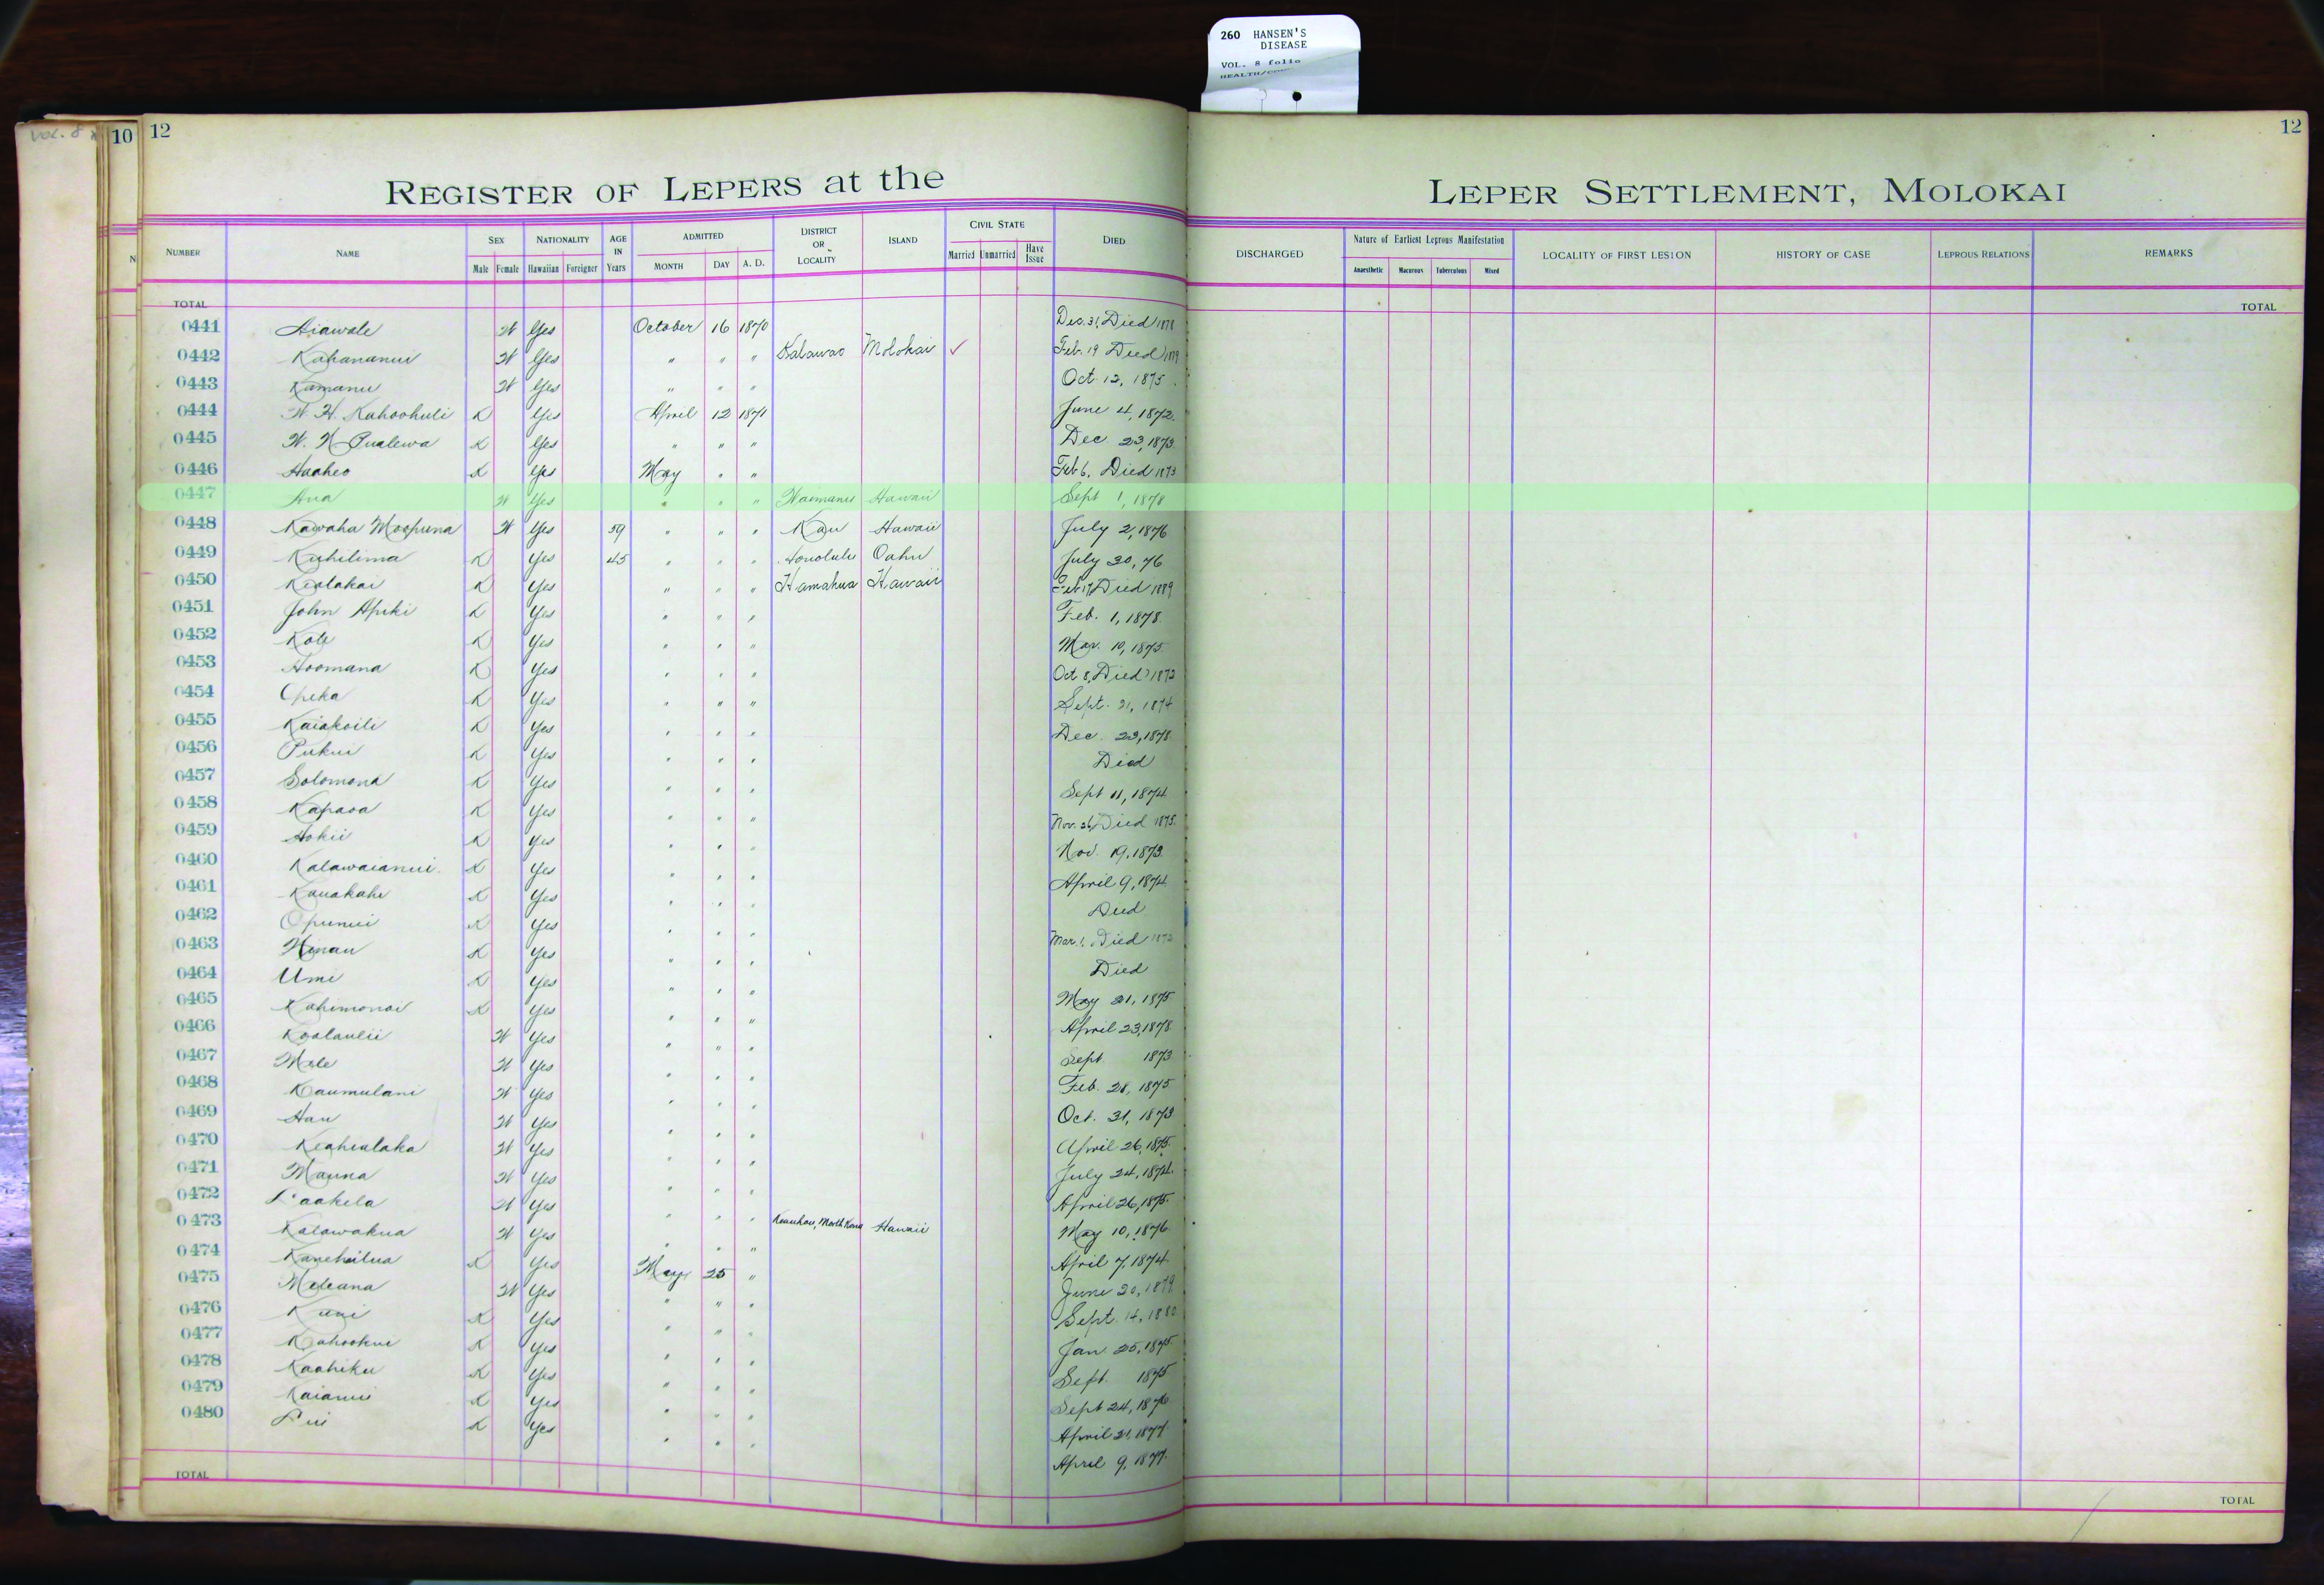 260 HANSEN'S
DISEASE
VOL. 8 folio
VOL. 8
10
12
12
REGISTER OF LEPERS at the LEPER SETTLEMENT, MOLOKAI
NUMBER NAME SEX NATIONALITY AGE IN Years ADMITTED DISTRICT OR LOCALITY ISLAND CIVIL STATE DIED DISCHARGED Nature of Earliest Leprous Manifestation LOCALITY OF FIRST LESION HISTORY OF CASE LEPROUS RELATIONS REMARKS
Male Female Hawaiian Foreigner MONTH DAY A. D. Married Unmarried Have Issue Anaesthetic Macurous Tuberculous Mixed
TOTAL TOTAL
0441 Aiawale W Yes October 16 1870 Dec. 31, Died 1878
0442 Kahananui W Yes " " " Kalawao Molokai ✓ Feb. 19 Died 1879
0443 Kamanu W Yes " " " Oct. 12, 1875
0444 W. H. Kahoohuli K Yes April 12 1871 June 4, 1872
0445 W. N. Pualewa K Yes " " " Dec. 23, 1873
0446 Haaheo K Yes May " " Feb 6, Died 1873
0447 Ana W Yes " " " Waimanu Hawaii Sept 1, 1878
0448 Kawaha Moopuna W Yes 59 " " " Kau Hawaii July 2, 1876
0449 Kuhilima K Yes 45 " " " Honolulu Oahu July 30, 76
0450 Kealakai K Yes " " " Hamakua Hawaii Feb 17, Died 1889
0451 John Apiki K Yes " " " Feb. 1, 1878
0452 Kole K Yes " " " Mar. 10, 1875
0453 Hoomana K Yes " " " Oct 8, Died 1872
0454 Opeka K Yes " " " Sept. 21, 1874
0455 Kaiakoili K Yes " " " Dec. 23, 1878
0456 Pukui K Yes " " " Died
0457 Solomona K Yes " " " Sept 11, 1874
0458 Kapaoa K Yes " " " Nov. 26, Died 1875
0459 Hokii K Yes " " " Nov. 19, 1873
0460 Kalawaianui K Yes " " " April 9, 1874
0461 Kauakahi K Yes " " " Died
0462 Opunui K Yes " " " Mar. 1, Died 1872
0463 Hinau K Yes " " " Died
0464 Umi K Yes " " " May 21, 1875
0465 Kahimonoi K Yes " " " April 23, 1878
0466 Koolaulii W Yes " " " Sept. 1873
0467 Mele W Yes " " " Feb. 28, 1875
0468 Kaumulani W Yes " " " Oct. 31, 1873
0469 Hau W Yes " " " April 26, 1875
0470 Keahialaka W Yes " " " July 24, 1874
0471 Mauna W Yes " " " April 26, 1875
0472 Laakela W Yes " " " Keauhou, North Kona Hawaii May 10, 1876
0473 Kalawakua W Yes " " " April 7, 1874
0474 Kanehailua K Yes May 25 " June 20, 1879
0475 Meleana W Yes " " " Sept. 14, 1880
0476 Kuni K Yes " " " Jan. 25, 1875
0477 Kahookui K Yes " " " Sept. 1875
0478 Kaahiku K Yes " " " Sept 24, 1876
0479 Kaianui K Yes " " " April 21, 1877
0480 Lui K Yes " " " April 9, 1877
TOTAL TOTAL